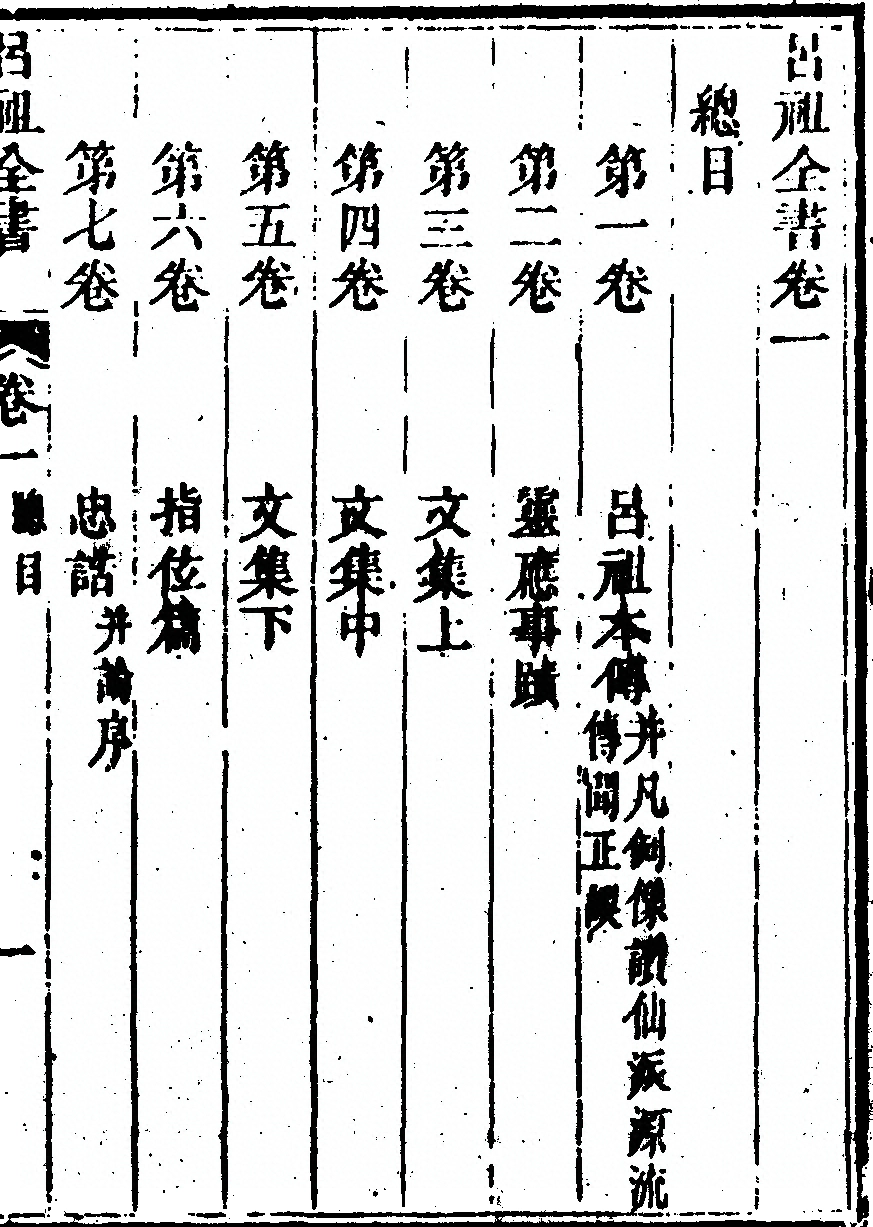 呂祖全書卷一
總目
第一卷 呂祖本傳 并凡例像讚仙派源流
傳聞正誤
第二卷 靈應事蹟
第三卷 文集上
第四卷 文集中
第五卷 文集下
第六卷 指玄篇
第七卷 忠誥 并論序
呂祖全書 卷一 總目 一